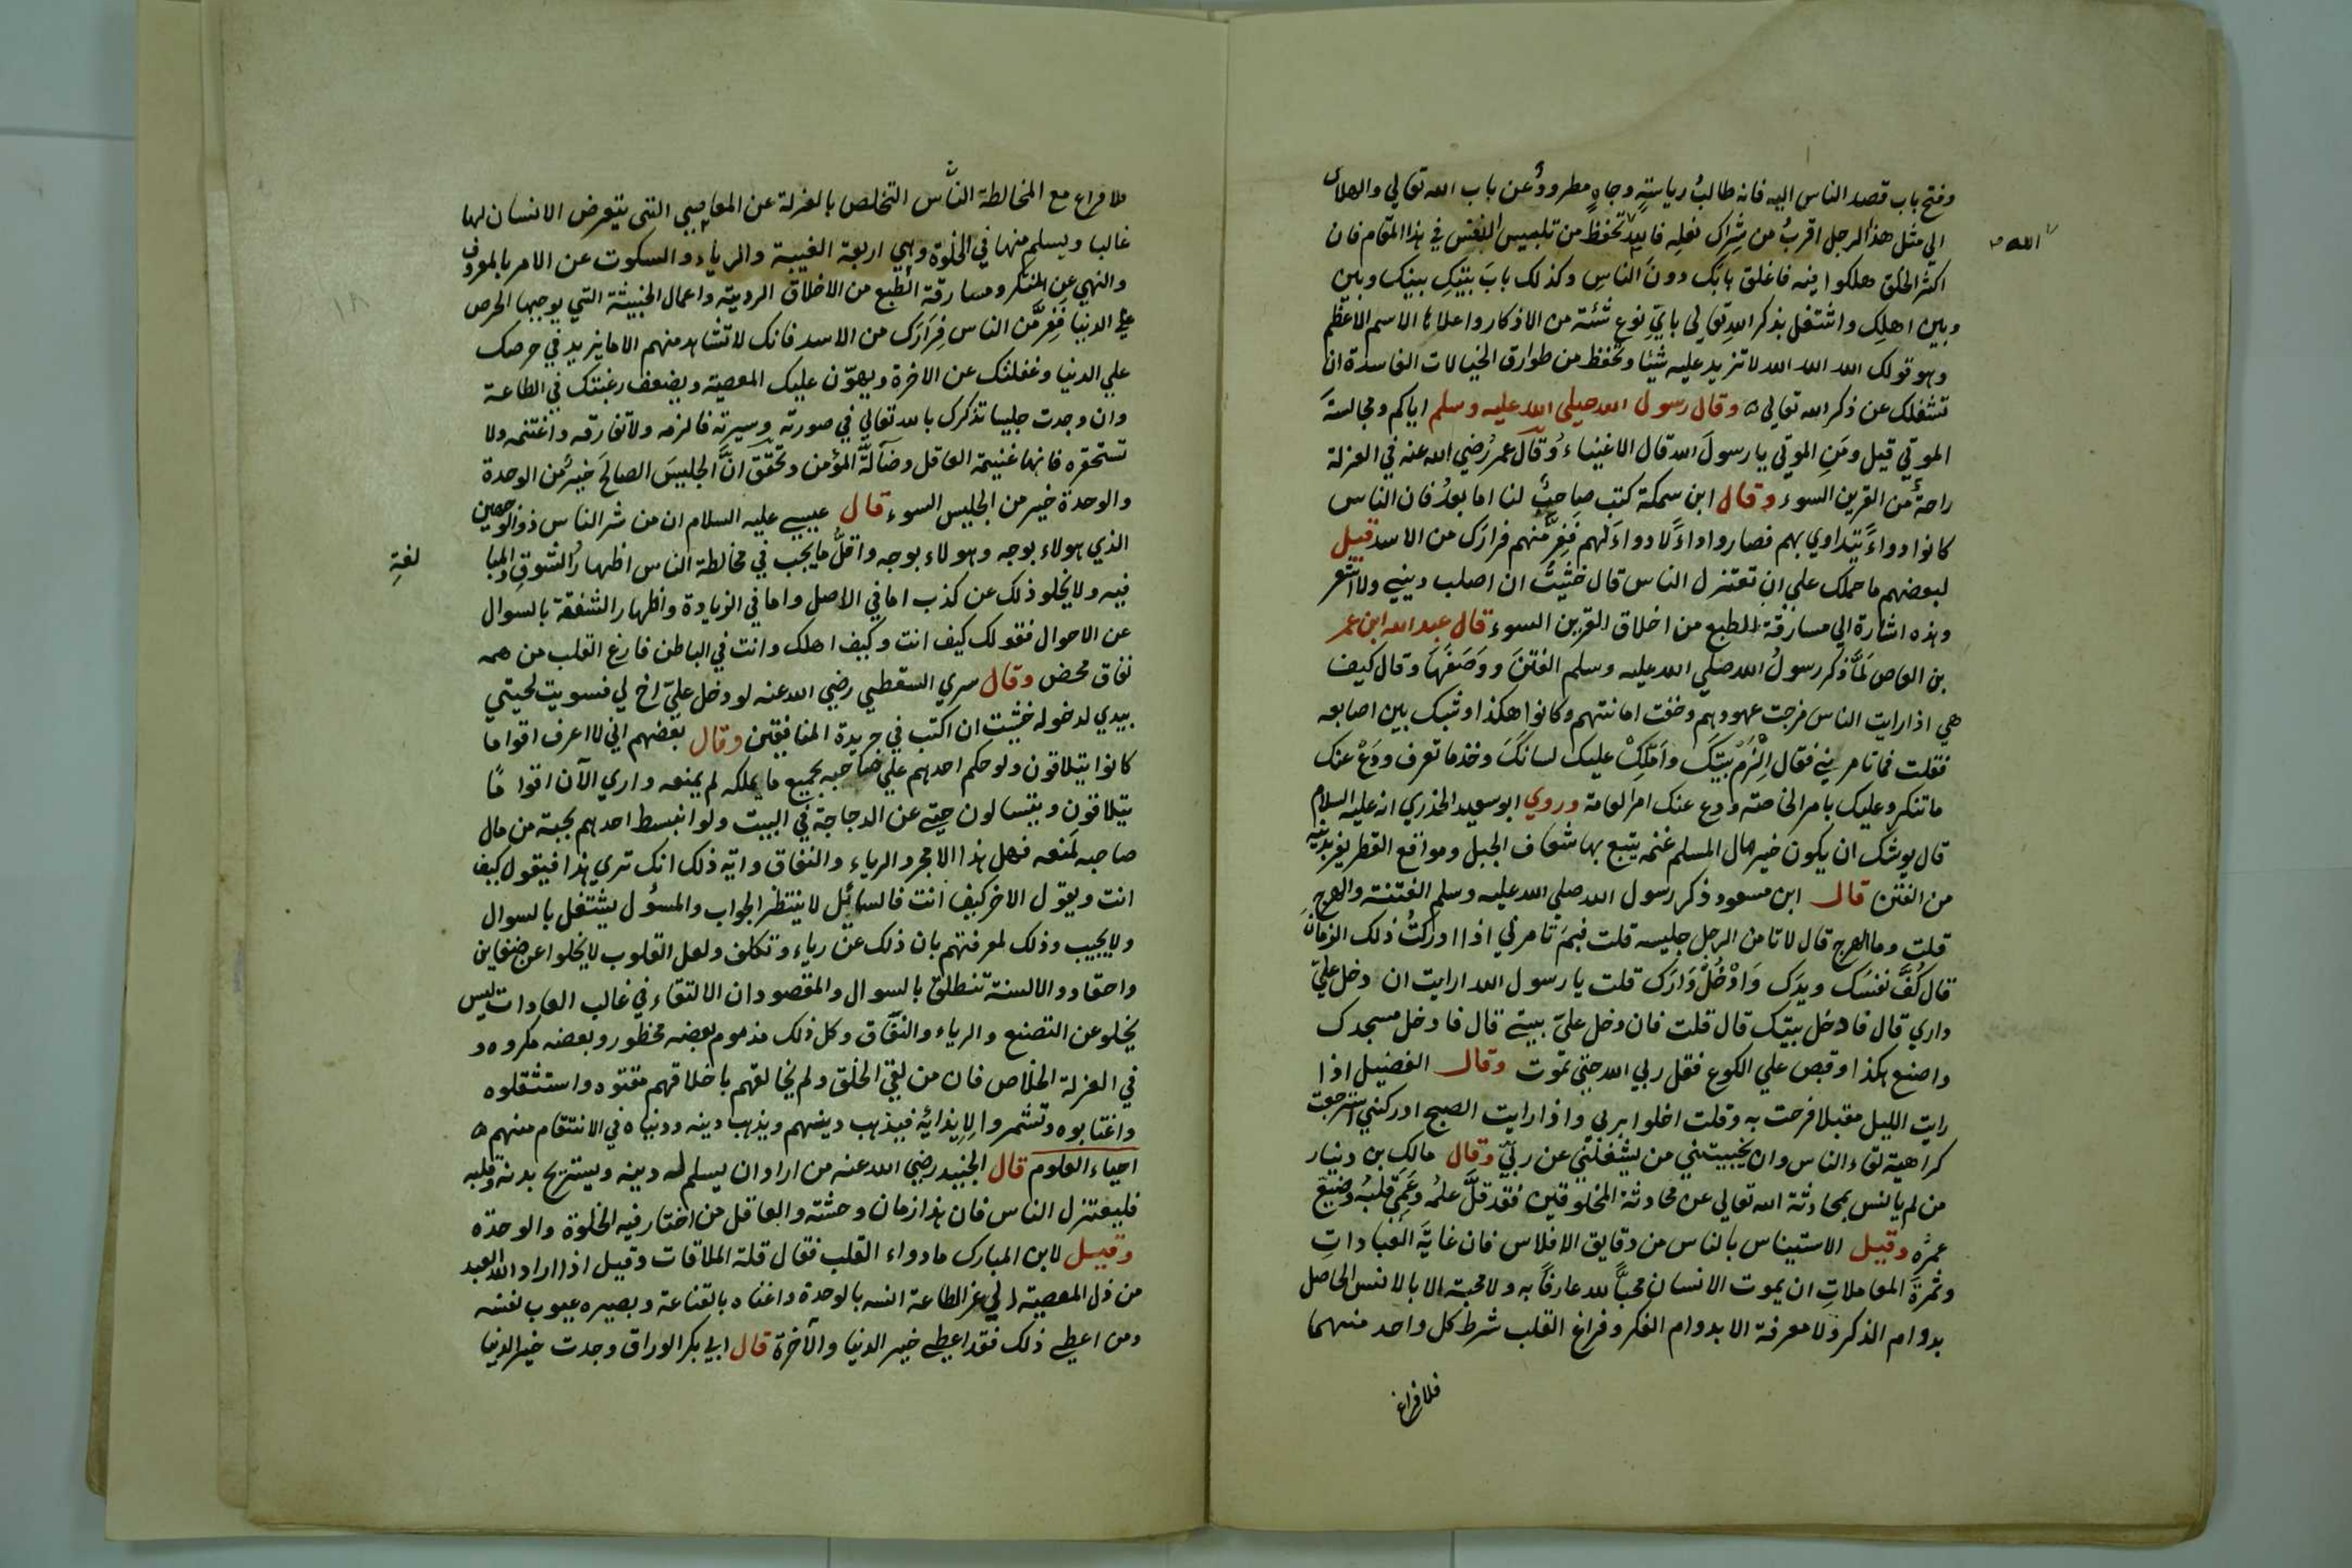 وفتح باب قصد الناس اليه فانه طالبُ رياستهٍ وجاهٍ مطرودٌ عن باب الله تعالي والهلاك
الي مثل هذا الرجل اقربُ من شِراكِ نعلِه فالله الله تحفظ من تلبيس النفس في هذا المقام فان
الله
اكثر الخلق هلكوا فيه فاغلق بابَك دون الناسِ وكذلك بابَ بيتِك بينك وبين
وبين اهلِك واشتغل بذكر اللهِ تعالي بايّ نوع شئته من الاذكار واعلاها الاسم الاعظم
وهو قولك الله الله الله لا تزيد عليه شيئا وتحفظ من طوارق الخيالات الفاسدة ان
تشغلك عن ذكر الله تعالي وقال رسول الله صلي الله عليه وسلم اياكم ومجالسةَ
الموتي قيل ومَنِ الموتي يا رسولَ الله قال الاغنياءُ وقال عمرُ رضي الله عنه في العزلة
راحةٌ من القرين السوء وقال ابن سمكة كتب صاحبٌ لنا اما بعدُ فان الناس
كانوا دواءً يتداوي بهم فصاروا داءً لا دواءَ لهم فَفِرَّ منهم فرارَك من الاسد قيل
لبعضهم ما حملك علي ان تعتزل الناس قال خشيتُ ان اصلب ديني ولا اشعر
وهذه اشارة الي مسارقة الطبع من اخلاق القرين السوء قال عبد الله ابن عمر
بن العاص لَمّا ذكر رسولُ الله صلي الله عليه وسلم الفتنَ ووَصَفَهَا وقال كيف
هي اذا رايت الناس مرجت عهودهم وخفت امانتهم وكانوا هكذا وشبك بين اصابعه
فقلت فما تامرني فقال اِلْزَمْ بيتَك واَمْلِكْ عليك لسانَكَ وخذ ما تعرف ودَعْ عنك
ما تنكر وعليك بامر الخاصة ودع عنك امر العامة وروي ابو سعيد الخذري انه عليه السلام
قال يوشك ان يكون خير مال المسلم غنم يتبع بها شعاف الجبل ومواقع القطر يفر بدينه
من الفتن قال ابن مسعود ذكر رسول الله صلي الله عليه وسلم الفتنة والهرجِ
قلت وما الهرج قال لا تامن الرجل جليسه قلت فبمَ تامرني اذا ادركتُ ذلك الزمان
قال كُفَّ نفسَك ويدَك وَادْخُلْ دَارَك قلت يا رسول الله ارايت ان دخل عليّ
داري قال فادخل بيتك قال قلت فان دخل عليّ بيتي قال فادخل مسجدك
واصنع هكذا وقبض علي الكوع فقل ربي الله حتي تموت وقال الفضيل اذا
رايت الليل مقبلا فرحت به وقلت اخلوا بربي واذا رايت الصبح ادركني استرجعت
كراهية لقاء الناس وان يجيبتني من يشغلني عن ربيّ وقال مالك بن دنيار
من لم يانس بمحادثة الله تعالي عن محادثة المخلوقين فقد قلَّ علمُه وعَمِيَ قلبُه وضيّع
عمرَه وقيل الاستيناس بالناس من دقايق الافلاس فان غايَةَ العباداتِ
وثمرةَ المعاملاتِ ان يموت الانسان محبًّا لله عارفًا به ولا محبة الا بالانس الحاصل
بدوام الذكر ولا معرفة الا بدوام الفكر وفراغ القلب شرط كل واحد منهما
فلا فراغ
فلا فراغ مع المخالطة الناس التخلص بالعزلة عن المعاصي التي يتعرض الانسان لها
غالبا ويسلم منها في الخلوة وهي اربعة الغيبة والرياء والسكوت عن الامر بالمعروف
١٨
والنهي عن المنكر ومسارقة الطبع من الاخلاق الردية واعمال الخبيثة التي يوجبها الحرص
علي الدنيا فَفِرَّ من الناس فِرَارَك من الاسد فانك لا تشاهد منهم الا ما يزيد في حرصك
علي الدنيا وغفلتك عن الاخرة ويهوّن عليك المعصية ويضعف رغبتك في الطاعة
وان وجدت جليسا تذكرك بالله تعالي في صورته وسيرته فالزمه ولا تفارقه واغتنمه ولا
تستحقره فانها غنيمة العاقل وضآلّة المؤمن وتحقّق انَّ الجليسَ الصالحَ خيرٌ من الوحدة
والوحدة خير من الجليس السوء قال عيسي عليه السلام ان من شر الناس ذوالوجهين
الذي هولاء بوجه وهولاء بوجه واقلّ ما يجب في مخالطة الناس اظهارُ الشوقِ والمبا
لغةِ
فيه ولا يخلو ذلك عن كذب اما في الاصل واما في الزيادة واظهار الشفقة بالسوال
عن الاحوال فقولك كيف انت وكيف اهلك وانت في الباطن فارغ القلب من همه
نفاق محض وقال سري السقطي رضي الله عنه لو دخل عليّ اخ لي فسويت لحيتي
بيدي لدخوله خشيت ان اكتب في جريدة المنافقين وقال بعضهم اني لا اعرف اقواما
كانوا يتلاقون ولو حكم احدهم علي صاحبه بجميع ما يملكه لم يمنعه واري الآن اقواما
يتلاقون ويتسالون حتي عن الدجاجة في البيت ولو انبسط احدهم بحبة من مال
صاحبه لمنعه فهل هذا الا مجرد الرياء والنفاق وايه ذلك انك تري هذا فيقول كيف
انت ويقول الاخر كيف انت فالسائل لا ينتظر الجواب والمسؤل يشتغل بالسوال
ولا يجيب وذلك لمعرفتهم بان ذلك عن رياء وتكلف ولعل القلوب لا يخلوا عن ضغاين
واحقاد والالسنة تنطلق بالسوال والمقصود ان الالتقاء في غالب العادات ليس
يخلو عن التصنع والرياء والنفاق وكل ذلك مذموم بعضه محظور وبعضه مكروه و
في العزلة الخلاص فان من لقي الخلق ولم يخالقهم باخلاقهم مقتوه واستثقلوه
واغتابوه وتشمروا لِايذائِه فيذهب دينهم ويذهب دينه ودنياه في الانتقام منهم
احياء العلوم قال الجنيد رضي الله عنه من اراد ان يسلم له دينه ويستريح بدنه وقلبه
فليعتزل الناس فان هذا زمان وحشته والعاقل من اختار فيه الخلوة والوحدة
وقيل لابن المبارك ما دواء القلب فقال قلة الملاقات وقيل اذا اراد الله العبد
من ذل المعصية الي عز الطاعة انسه بالوحدة واغناه بالقناعة وبصيره عيوب نفسه
ومن اعطي ذلك فقد اعطي خير الدنيا والآخرة قال ابي بكر الوراق وجدت خير الدنيا